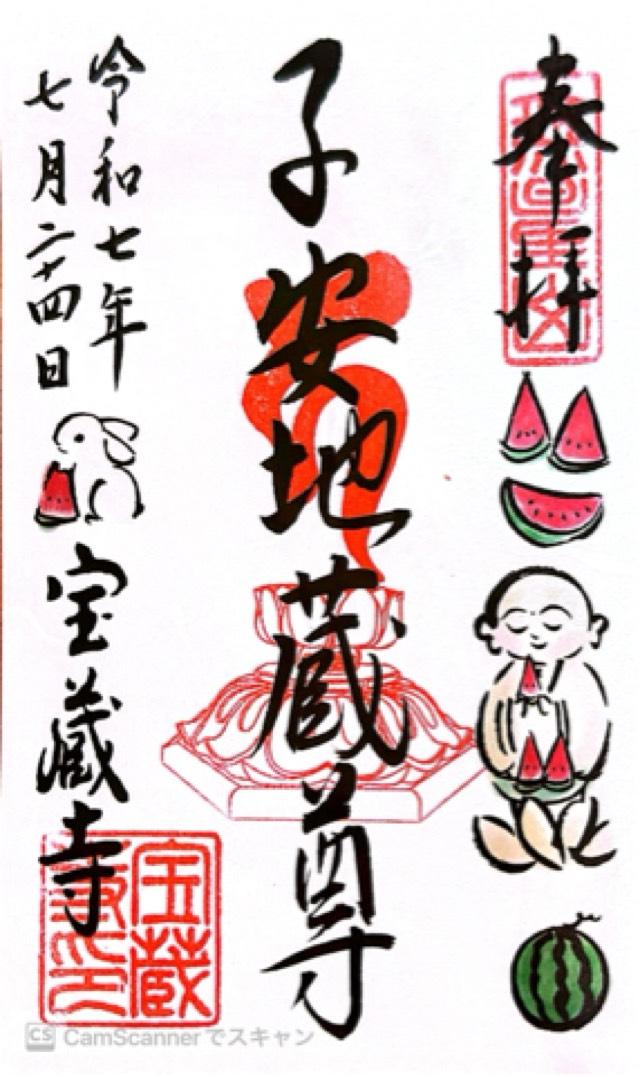 奉拝
子安地蔵尊
令和七年
七月二十四日
宝蔵寺
宝蔵
寺印
CS CamScanner でスキャン